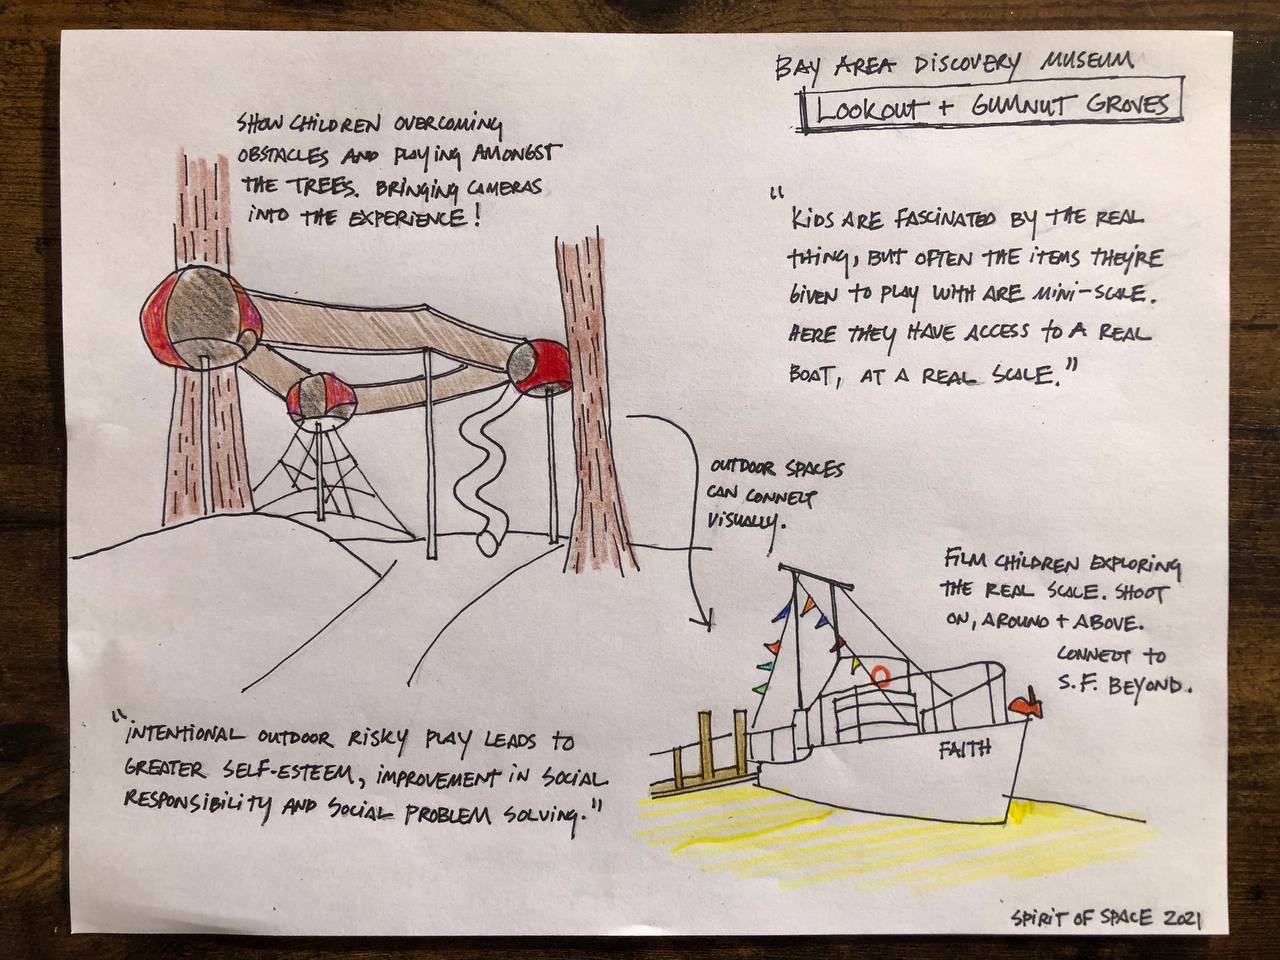 BAY AREA DISCOVERY MUSEUM
LOOKOUT + GUMNUT GROVES
SHOW CHILDREN OVERCOMING
OBSTACLES AND PLAYING AMONGST
THE TREES. BRINGING CAMERAS
INTO THE EXPERIENCE!
"KIDS ARE FASCINATED BY THE REAL
THING, BUT OFTEN THE ITEMS THEY'RE
GIVEN TO PLAY WITH ARE MINI-SCALE.
HERE THEY HAVE ACCESS TO A REAL
BOAT, AT A REAL SCALE."
OUTDOOR SPACES
CAN CONNECT
VISUALLY.
FILM CHILDREN EXPLORING
THE REAL SCALE. SHOOT
ON, AROUND + ABOVE.
CONNECT TO
S.F. BEYOND.
FAITH
"INTENTIONAL OUTDOOR RISKY PLAY LEADS TO
GREATER SELF-ESTEEM, IMPROVEMENT IN SOCIAL
RESPONSIBILITY AND SOCIAL PROBLEM SOLVING."
SPIRIT OF SPACE 2021